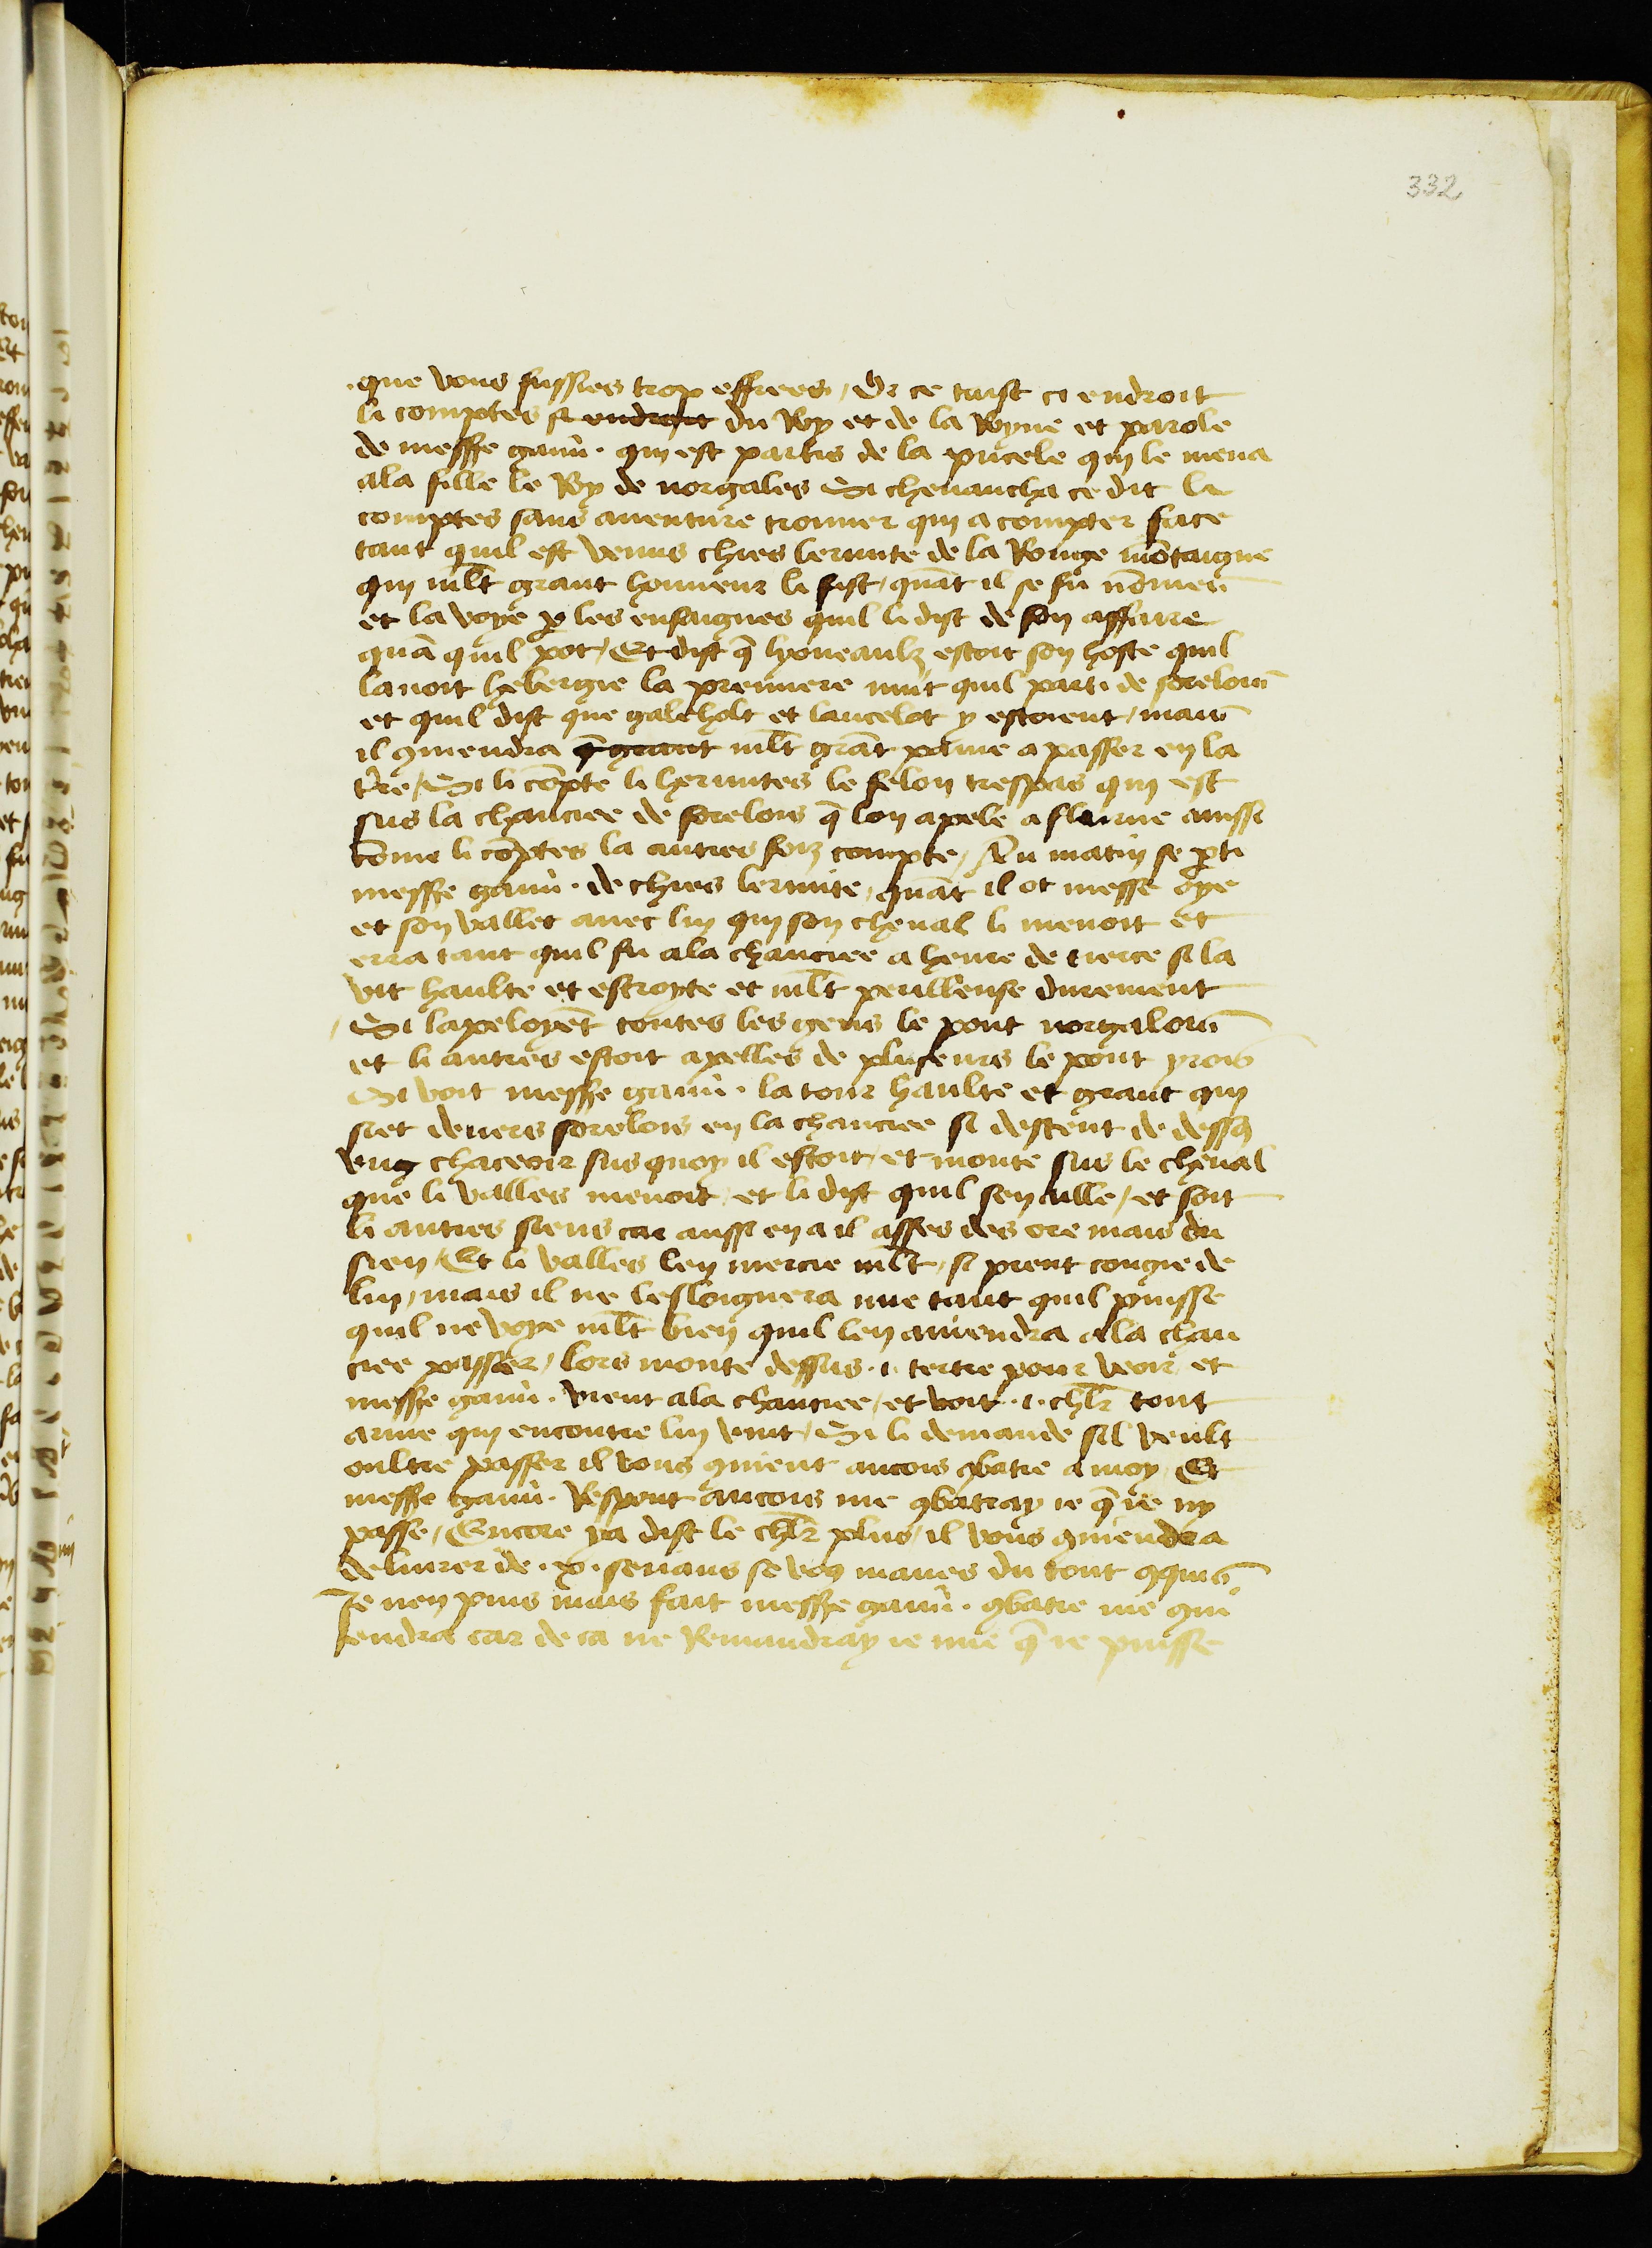 332
que vous fussies trop effrees / Or ce taist ci endroit
li comptes si endroit du Roy et de la Royne et parole
de messe gauu̇ · qui est partis de la pucele qui le mena
ala fille le Roy de norgales Si cheuaucha ce dit li
comptes sans auenture trouuer qui a compter face
tant quil est venus chies lermite de la Rouge mōtaigne
qui ml̄t grant honneur li fist / quāt il se fu nōmeu
et la voye ꝑ les ensaignes quil li dist de son affaire
quā quil pot / Et dist q̄ lyoneaulz estoit son hoste quil
lauoit hebergie la premiere nuit quil parti de sorelois
et quil dist que galeholt et lancelot y estoient / mais
il ꝯuiendra q̄ grant ml̄t grāt paine a passer en la
t̄re / Si li cōpte li hermites le felon trespas qui est
sus la chauciee de sorelois q̄ lon apele a flairne aussi
cōme li cōptes la autres foiz compte / Au matin se ꝑti
messe gauu̇ · de chies lermite / quāt il ot messe oye
et son vallet auec lui qui son cheual li menoit et
erra tant quil fu ala chauciee a heure de tierce si la
vit haulte et estroyte et ml̄t perilleuse durement
/ Si lapeloyēt toutes les gens le pont norgalois
et li autres estoit apelles de pluseurs le pont yrois
Si voit messe gauu̇ · la tour haulte et grant qui
siet deuers sorelois en la chauciee si destent de dessꝯ
vng chaceoir sus quoy il estoit / et monte sus le cheual
que li valles menoit / et li dist quil sen aille / et soit
li autres siens car aussi en a il asses des ore mais du
sien / Et li valles len mercie ml̄t / si prent congie de
lui / mais il ne leslongnera mie tant quil puisse
quil ne voye ml̄t bien quil len auiendra ala chau
ciee passer / lors monte dessus · i · tertre pour veoir et
messe gauu̇ · vient ala chauciee / et voit · i · chl̄r tout
arme qui encontre lui vint / Si li demande sil veult
oultre passer il vous ꝯuient ancois ꝯbatre a moy / Et
messe gauu̇ · Respont ancois me ꝯbatray ie q̄ ie ny
passe / Encore ya dist le chl̄r plus / il vous ꝯuiendra
deliurer de · x · serians se voꝯ maues du tout ꝯquis
Je nen puis mais fait messe gauu̇ · ꝯbatre me ꝯui
endra car de ca ne Remandray ie mie q̄ ie puisse